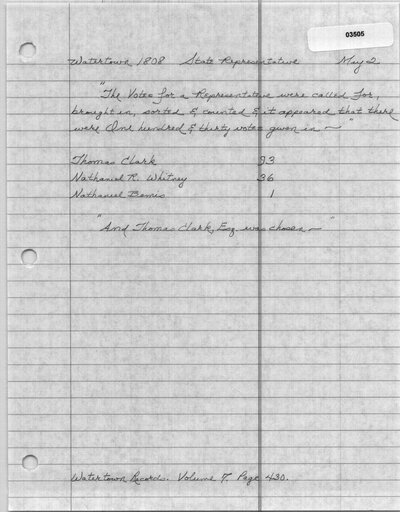 03505
Watertown 1808 State Representative May 2
"The Votes for a Representative were called for,
brought in, sorted & counted & it appeared that there
were One hundred & thirty votes given in ~"
Thomas Clark 93
Nathaniel R. Whitney 36
Nathaniel Bemis 1
"And Thomas Clark, Esq. was chosen ~ "
Watertown Records. Volume 7. Page 430.